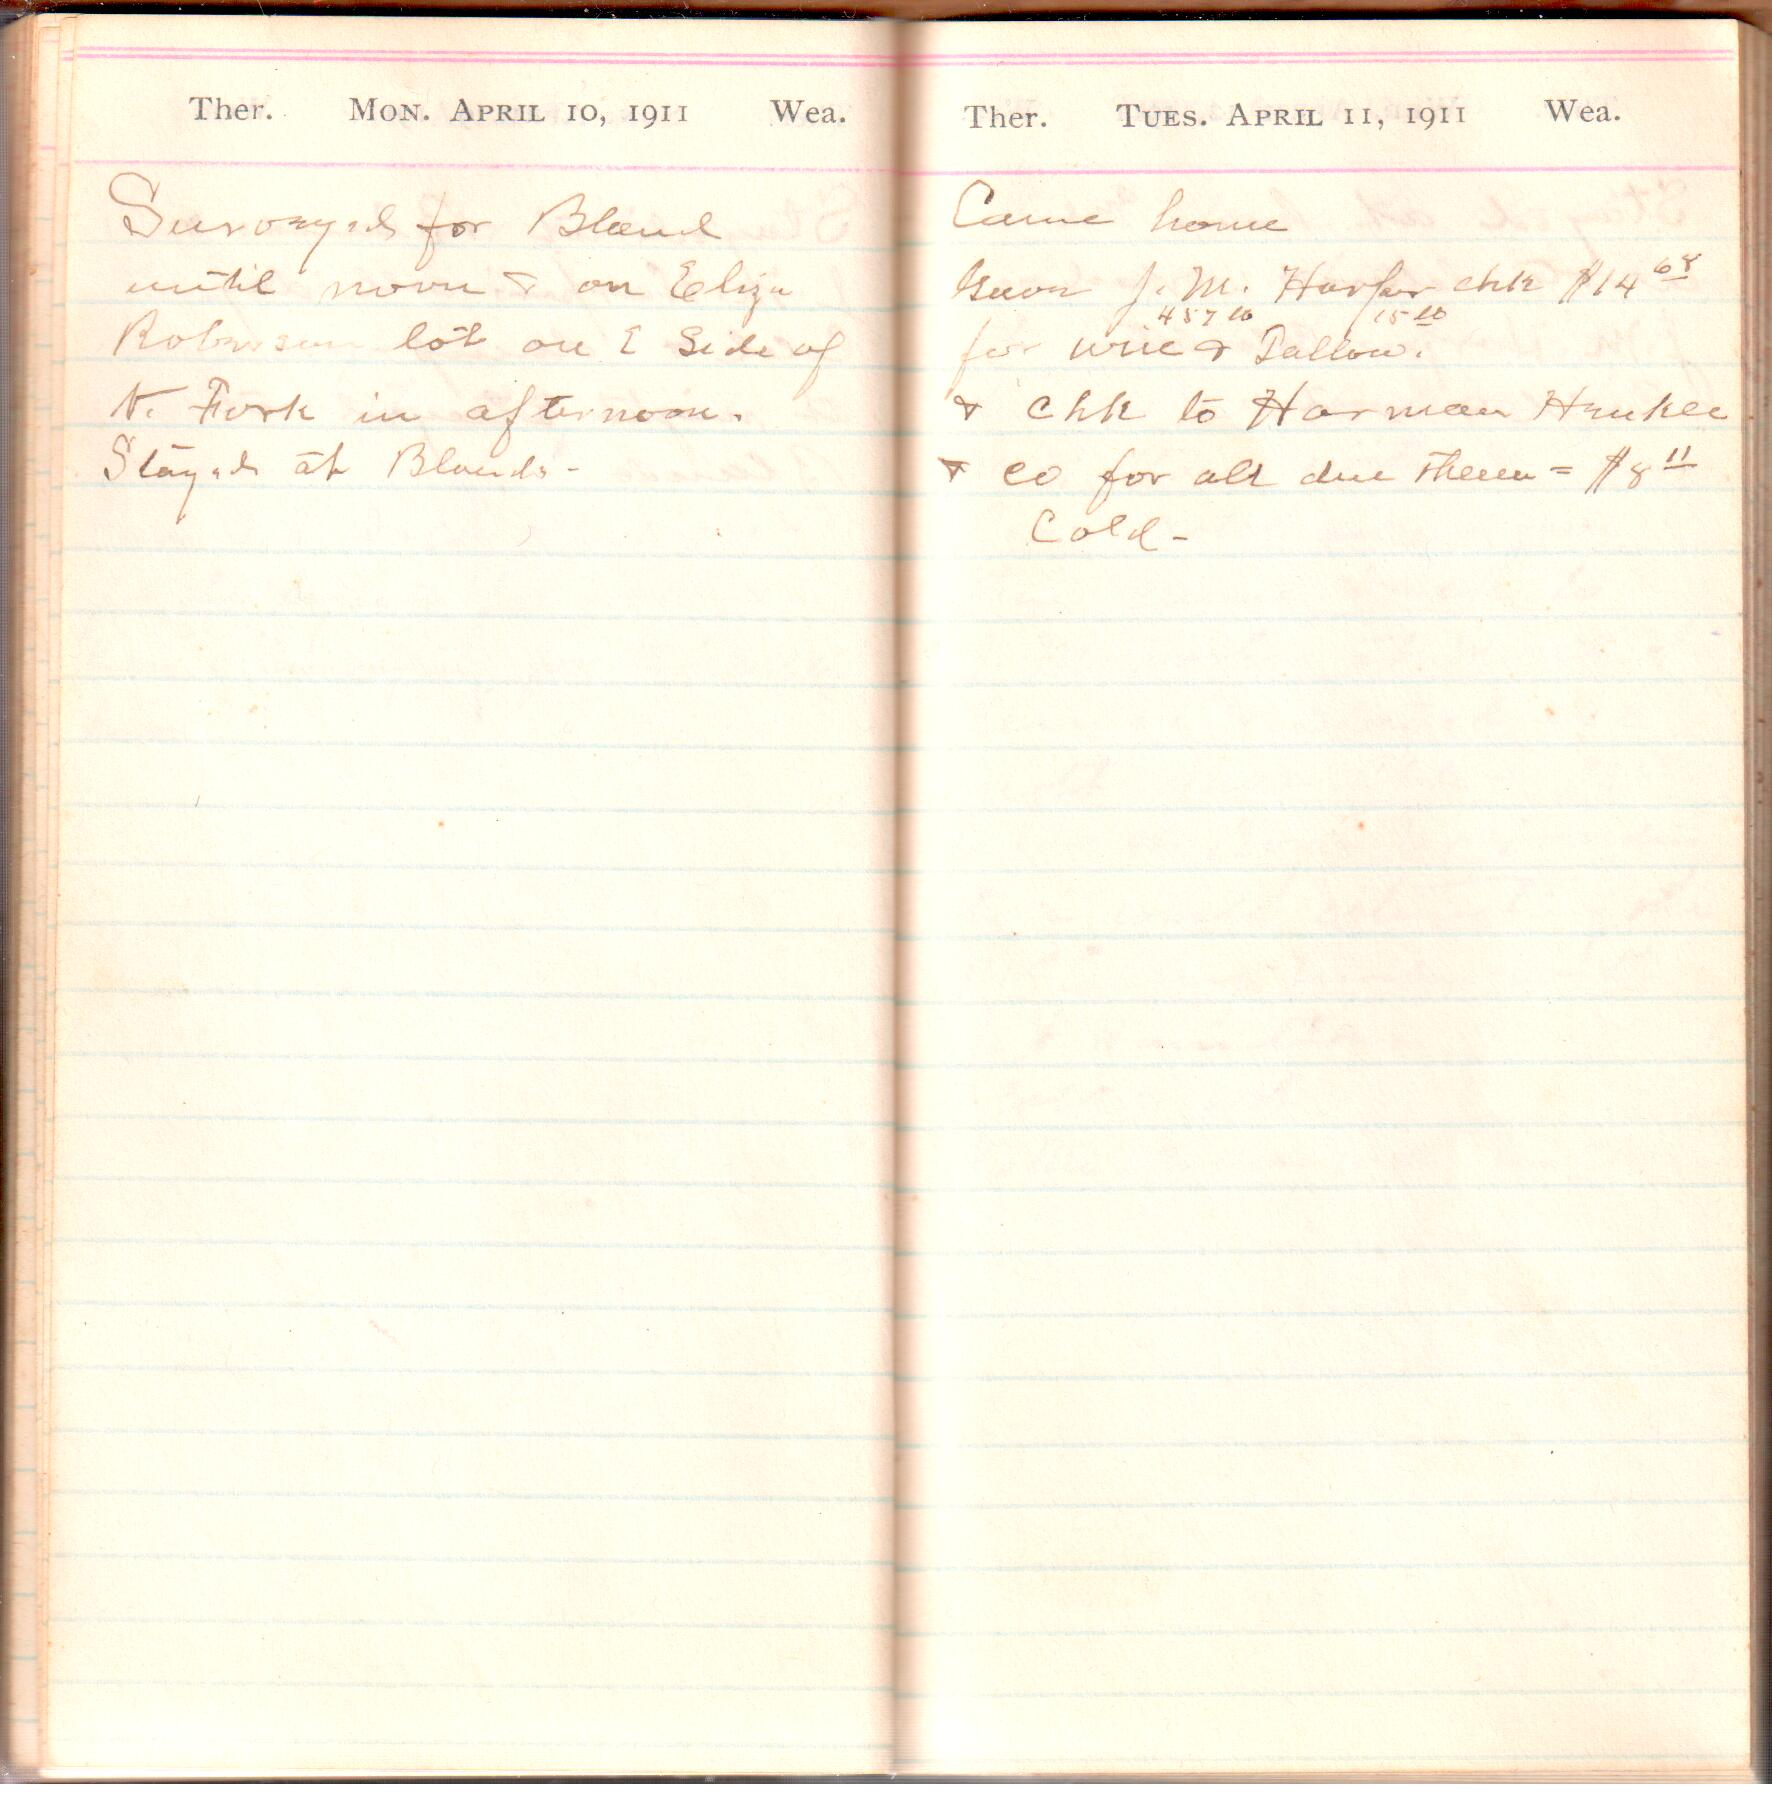 Ther. Mon. April 10, 1911 Wea.
Surveyed for Bland
until noon & on Eliza
Robinson lot on E Side of
N. Fork in afternoon.
Stayed at Blands-
Ther. Tues. April 11, 1911 Wea.
Came home
Gave J. M. Harper chk $14 68
457 lb 15 lb
for wire & Tallow.
& chk to Harman Henkle
& co for all due them = $8 11
Cold-